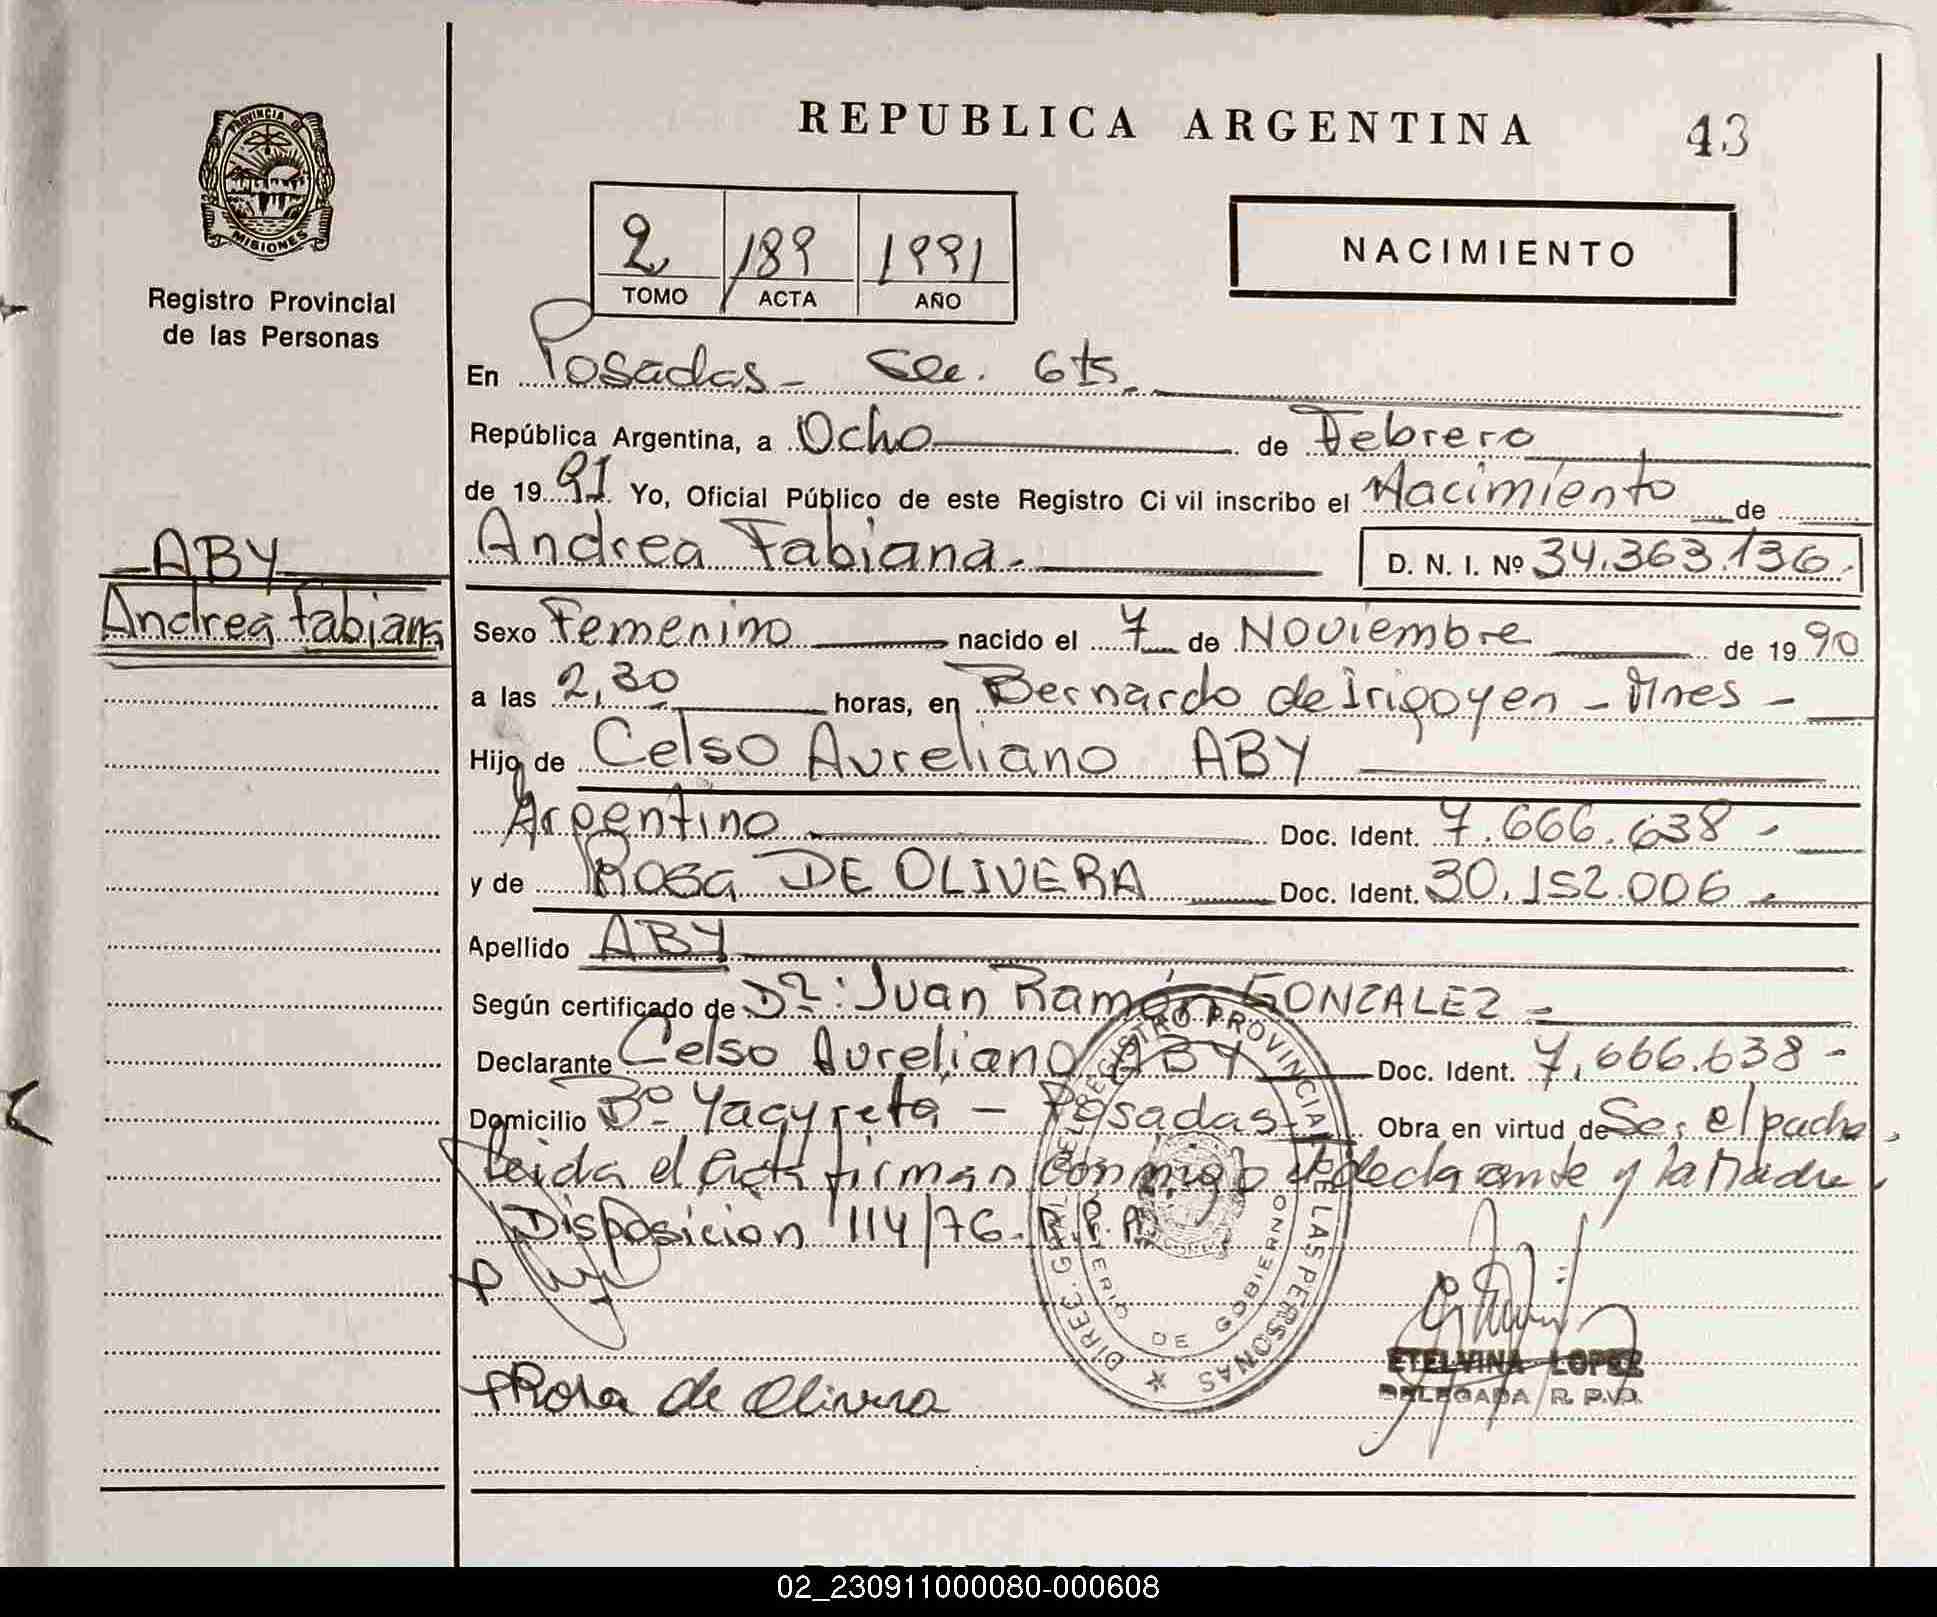 REPUBLICA ARGENTINA
43
PROVINCIA DE
MISIONES
Registro Provincial
de las Personas
2 189 1991
TOMO ACTA AÑO
NACIMIENTO
En Posadas - Sec. 6ta.
República Argentina, a Ocho de Febrero
de 1991 Yo, Oficial Público de este Registro Civil inscribo el Nacimiento de
Andrea Fabiana. D. N. I. Nº 34.363.136.
ABY
Andrea Fabiana
Sexo Femenino nacido el 7 de Noviembre de 1990
a las 2,30 horas, en Bernardo de Irigoyen - Mnes -
Hijo de Celso Aureliano ABY
Argentino Doc. Ident. 7.666.638 -
y de Rosa DE OLIVERA Doc. Ident. 30.152.006 -
Apellido ABY
Según certificado de Dº: Juan Ramón GONZALEZ -
Declarante Celso Aureliano ABY Doc. Ident. 7.666.638 -
Domicilio Bº Yacyreta - Posadas Obra en virtud de Ser el padre,
leida el acta firman conmigo el declarante y la Madre,
Disposicion 114/76. R.P.P.
DIREC. GRAL. DEL REGISTRO PROVINCIAL DE LAS PERSONAS
MINISTERIO DE GOBIERNO
ETELVINA LOPEZ
DELEGADA R. P.P.
Rosa de Olivera
02_230911000080-000608